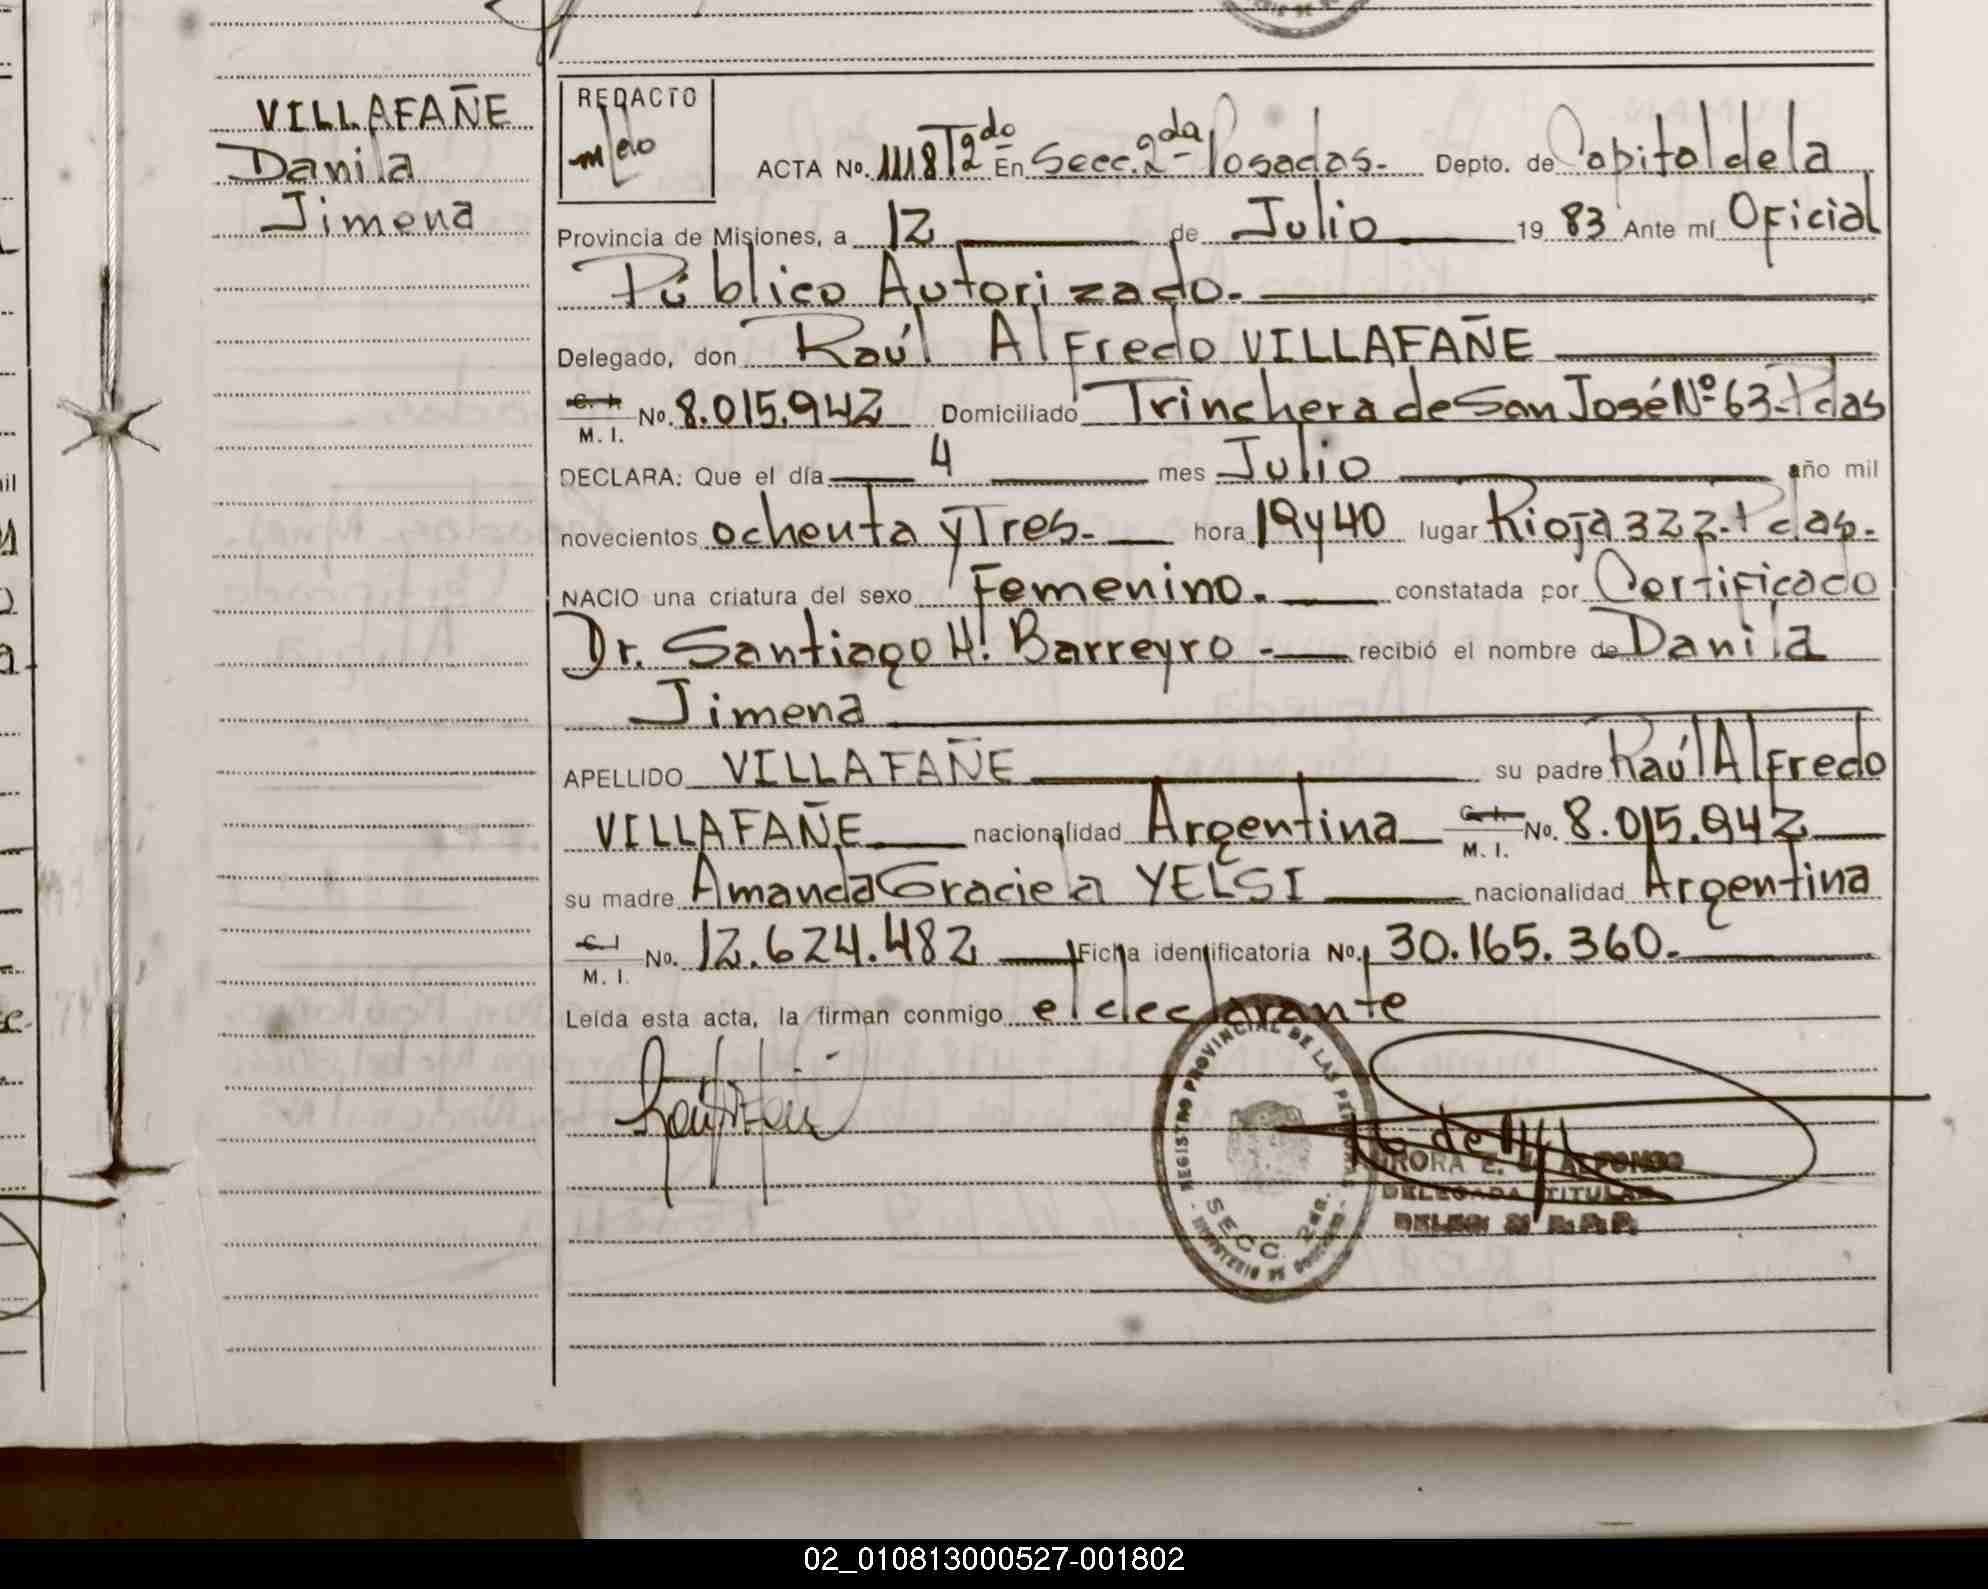 VILLAFAÑE
Danila
Jimena
REDACTO
ACTA No. 1118 T 2do En Secc. 2da Posadas.- Depto. de Capital de la
Provincia de Misiones, a 12 de Julio 19 83 Ante mí Oficial
Público Autorizado.-
Delegado, don Raúl Alfredo VILLAFAÑE
C. I.
M. I. No. 8.015.942 Domiciliado Trinchera de San José Nº 63-Pdas
DECLARA: Que el día 4 mes Julio año mil
novecientos ochenta y Tres.- hora 19 y 40 lugar Rioja 322-Pdas.
NACIO una criatura del sexo Femenino.- constatada por Certificado
Dr. Santiago H. Barreyro.- recibió el nombre de Danila
Jimena
APELLIDO VILLAFAÑE su padre Raúl Alfredo
VILLAFAÑE nacionalidad Argentina C. I.
M. I. No. 8.015.942
su madre Amanda Graciela YELSI nacionalidad Argentina
C. I.
M. I. No. 12.624.482 Ficha identificatoria No. 30.165.360.-
Leída esta acta, la firman conmigo el declarante
REGISTRO PROVINCIAL DE LAS PERSONAS
SECC. 2da.
MINISTERIO DE GOBIERNO
ALFONSO
DELEGADA TITULAR
02_010813000527-001802